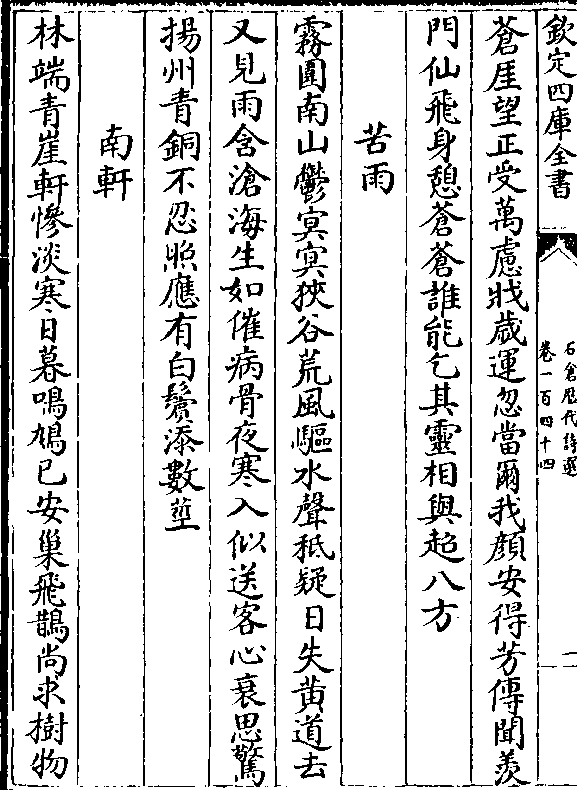 欽定四庫全書
石倉歷代詩選
卷一百四十四
一
蒼厓望正受萬慮戕歲運忽當爾我顔安得芳傳聞羨
門仙飛身憩蒼蒼誰能乞其靈相與超八方
苦雨
霧圍南山鬱冥冥狹谷荒風驅水聲秪疑日失黄道去
又見雨含滄海生如催病骨夜寒入似送客心衰思驚
揚州青銅不忍照應有白鬢添數莖
南軒
林端青崖軒慘淡寒日暮鳴鳩已安巢飛鵲尚求樹物